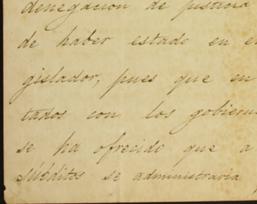 denegacion de justicia
de haber estado en e
gislador, pues que en
tados con los gobiern
se ha ofrecido que a
súbditos se administraria